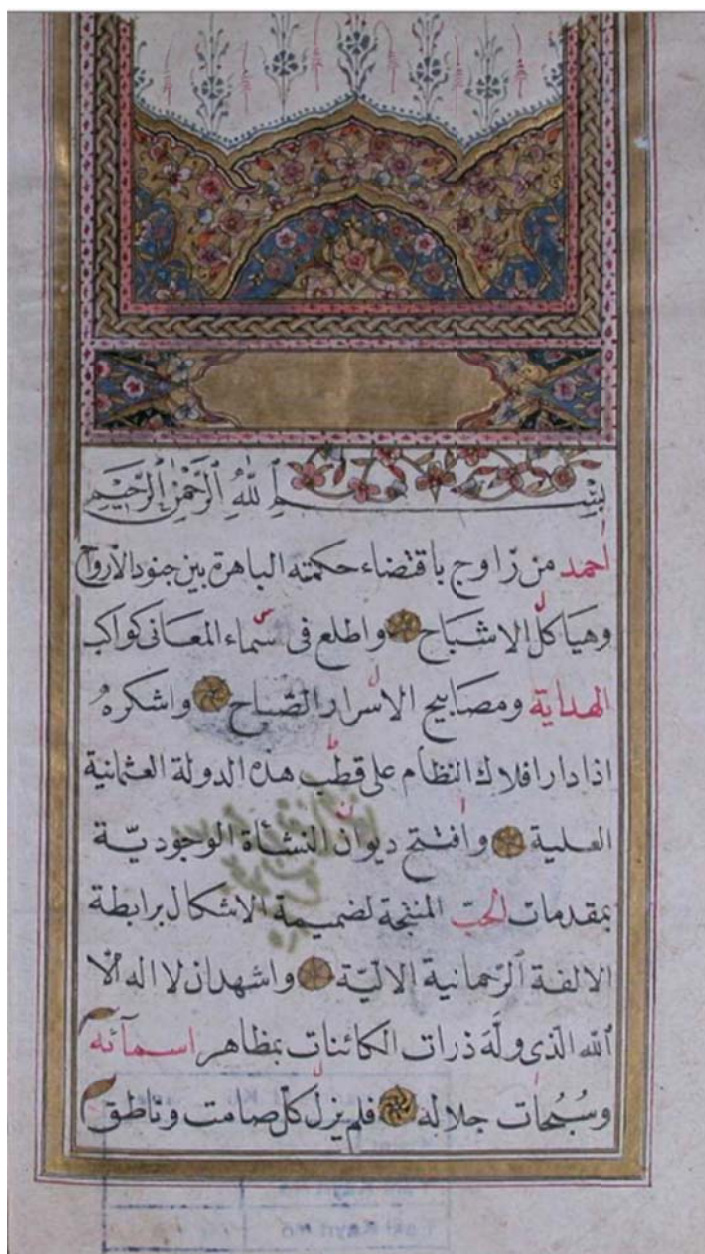 بِسْمِ ٱللّٰهِ ٱلرَّحْمٰنِ ٱلرَّحِيمِ
احمد من زاوج باقتضاء حكمته الباهرة بين جنود الارواح
وهياكل الاشباح واطلع فى سماء المعانى كواكب
الهداية ومصابيح الاسرار الصباح واشكره
اذا دار افلاك النظام على قطب هذه الدولة العثمانية
العلية وافتتح ديوان النشأة الوجوديّة
بمقدمات الحبّ المنتجة لضميمة الاشكال برابطة
الالفة الرّحمانية الالٓيّة واشهد ان لا اله الا
ٱللّه الذى ولّه ذرات الكائنات بمظاهر اسمآئه
وسُبُحات جلاله فلم يزل كلّ صامت وناطق